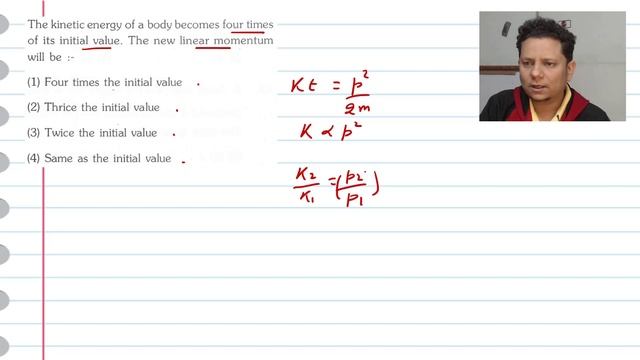 The kinetic energy of a body becomes four times
of its initial value. The new linear momentum
will be :-
(1) Four times the initial value
(2) Thrice the initial value
(3) Twice the initial value
(4) Same as the initial value
KE = p²/2m
K ∝ p²
K₂/K₁ = (p₂/p₁)